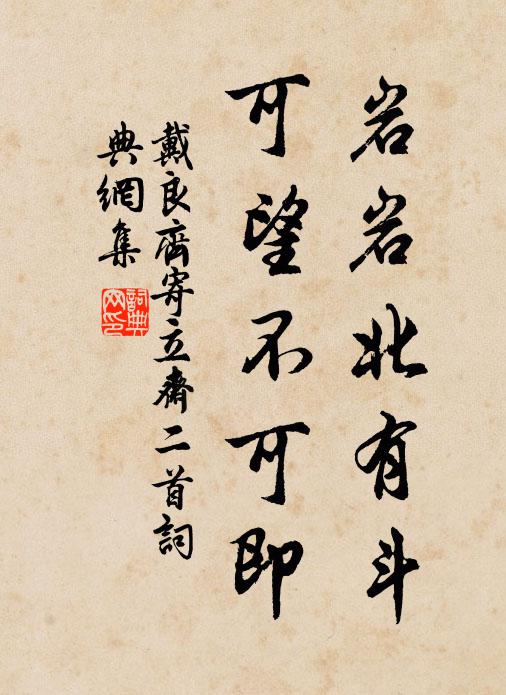 岩岩北有斗
可望不可即
戴良齊寄立齋二首詞
典網集
詞典
网印